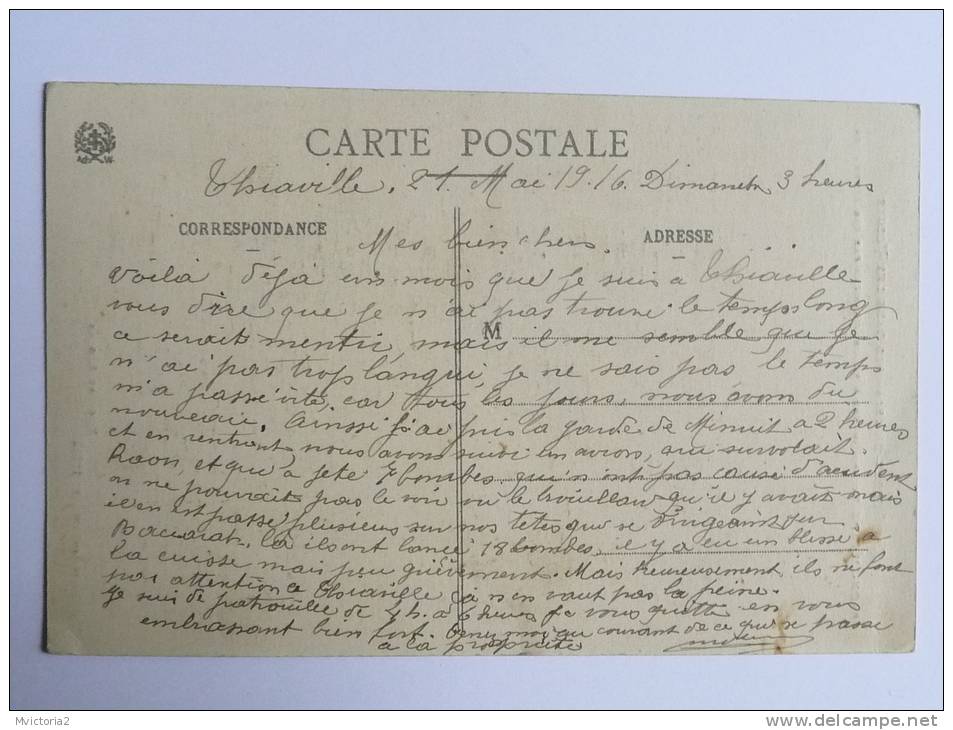 CARTE POSTALE
Thiaville, 21 Mai 1916. Dimanch 3 heures
CORRESPONDANCE
ADRESSE
Mes bien chers.
Voilà déjà un mois que je suis à Thiaville
vous dire que je n'ai pas trouvé le temps long
M
ce serait mentir, mais il me semble que je
n'ai pas trop langui, je ne sais pas le temps
m'a passé vite, car tous les jours, nous avons du
nouveau. Ainsi j'ai pris la garde de Minuit a 2 heures
et en rentrant nous avons suivi un avion, qui survolait
Raon, et qui a jeté 7 bombes qui n'ont pas causé d'accident
on ne pouvait pas le voir vu le brouillard qu'il y avait mais
il en est passé plusieurs sur nos têtes qui se dirigeaint sur
Baccarat, là ils ont lancé 18 bombes, il y a eu un blessé a
la cuisse mais peu grièvement. Mais heureusement ils ne font
pas attention a Thiaville ça n'en vaut pas la peine.
Je suis de patrouille de 4 h. à 6 heures je vous quitte en vous
embrassant bien fort. Tenez moi au courant de ce qui se passe
a la propriété
Mvictoria2
www.delcampe.net